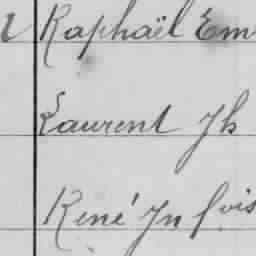 Raphaël Em
Laurent Jh
René Jn fois